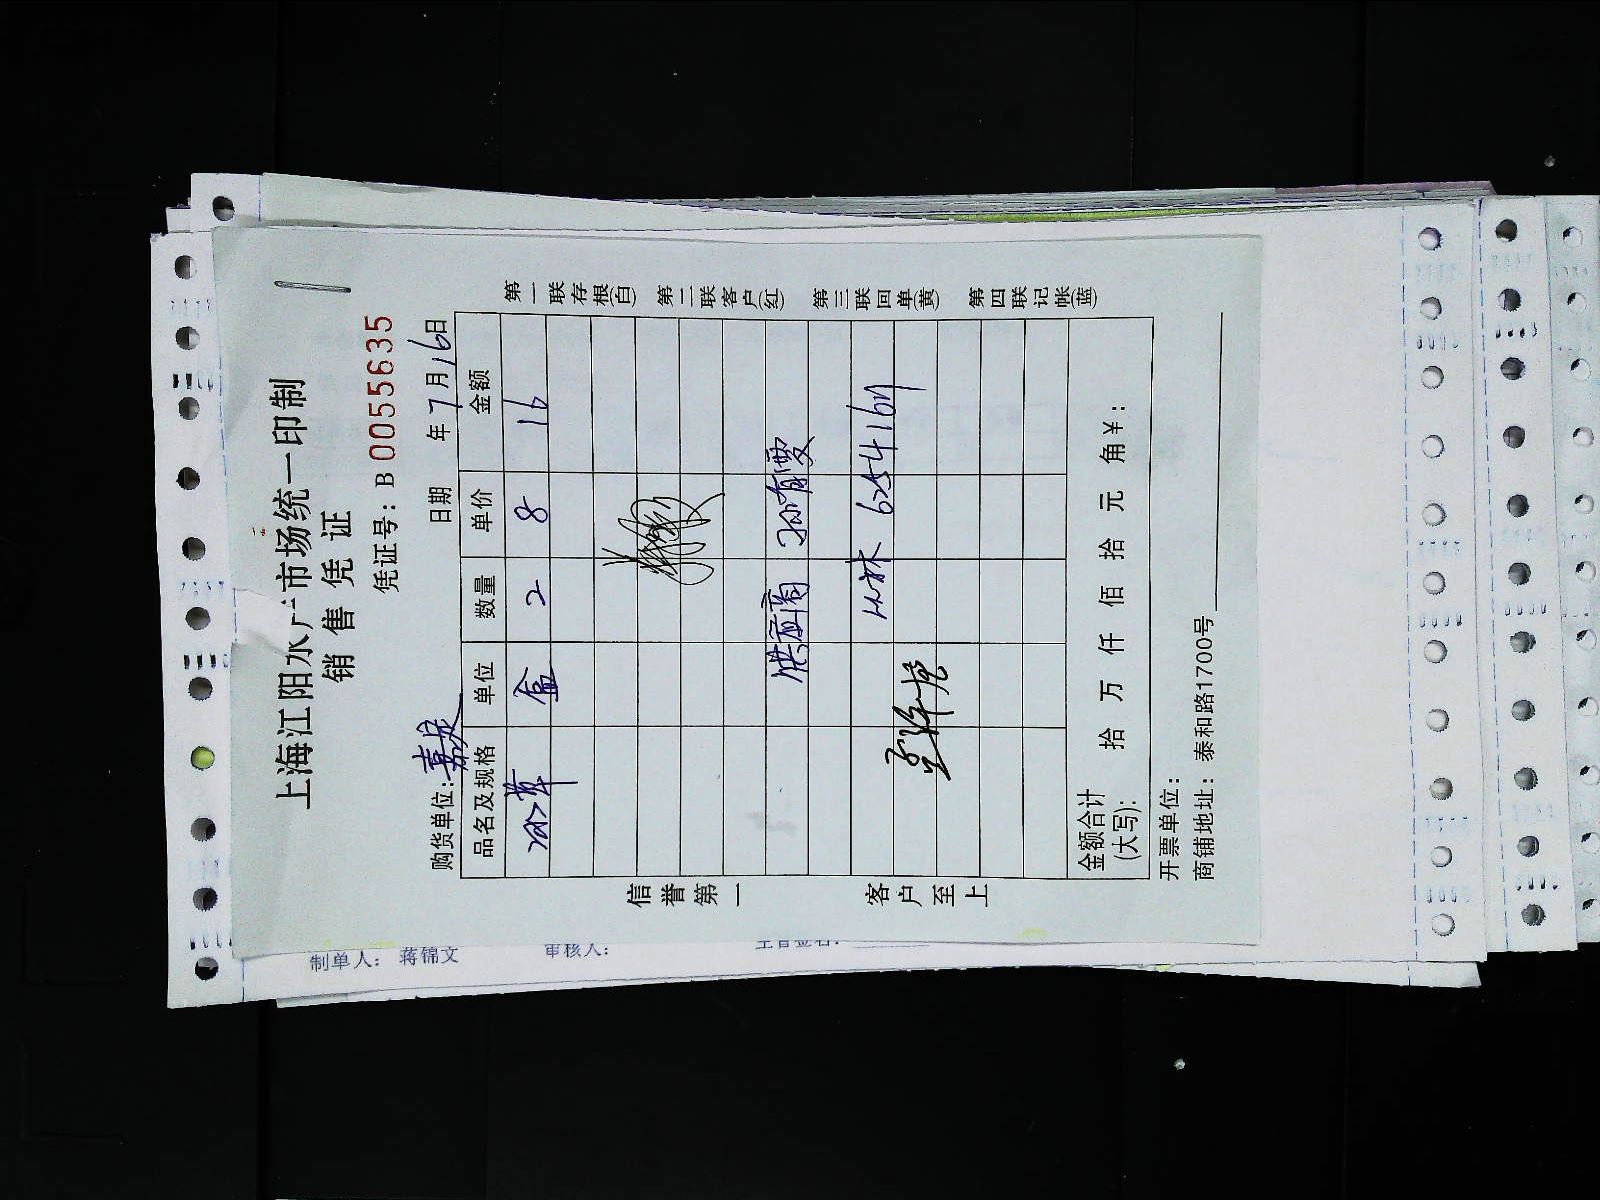 上海江阳水产市场统一印制
销售凭证
凭证号：B 0055635
购货单位：嘉定 日期 年7月16日
品名及规格 单位 数量 单价 金额
盒 2 8 16
供应商 孙有雯
62541671
金额合计
(大写)： 拾 万 仟 佰 拾 元 角￥：
开票单位：
商铺地址：泰和路1700号
信誉第一 客户至上
第一联存根(白) 第二联客户(红) 第三联回单(黄) 第四联记帐(蓝)
制单人： 蒋锦文
审核人：